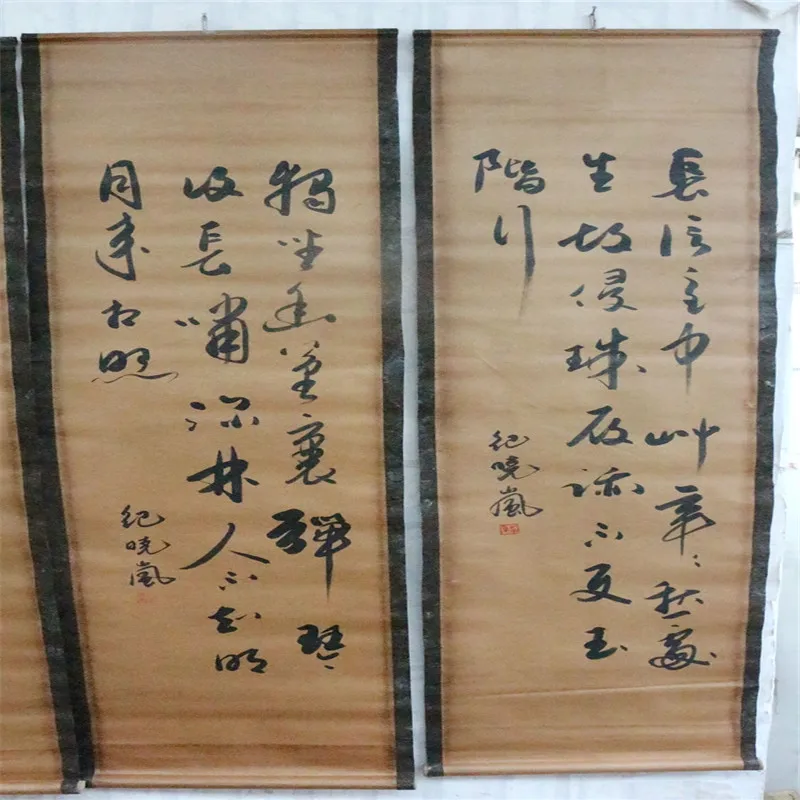 長信宫中艸年〻愁處
生故侵珠履跡不使玉
階行
紀曉嵐
獨坐幽篁裏彈琴
復長嘯深林人不知明
月來相照
紀曉嵐